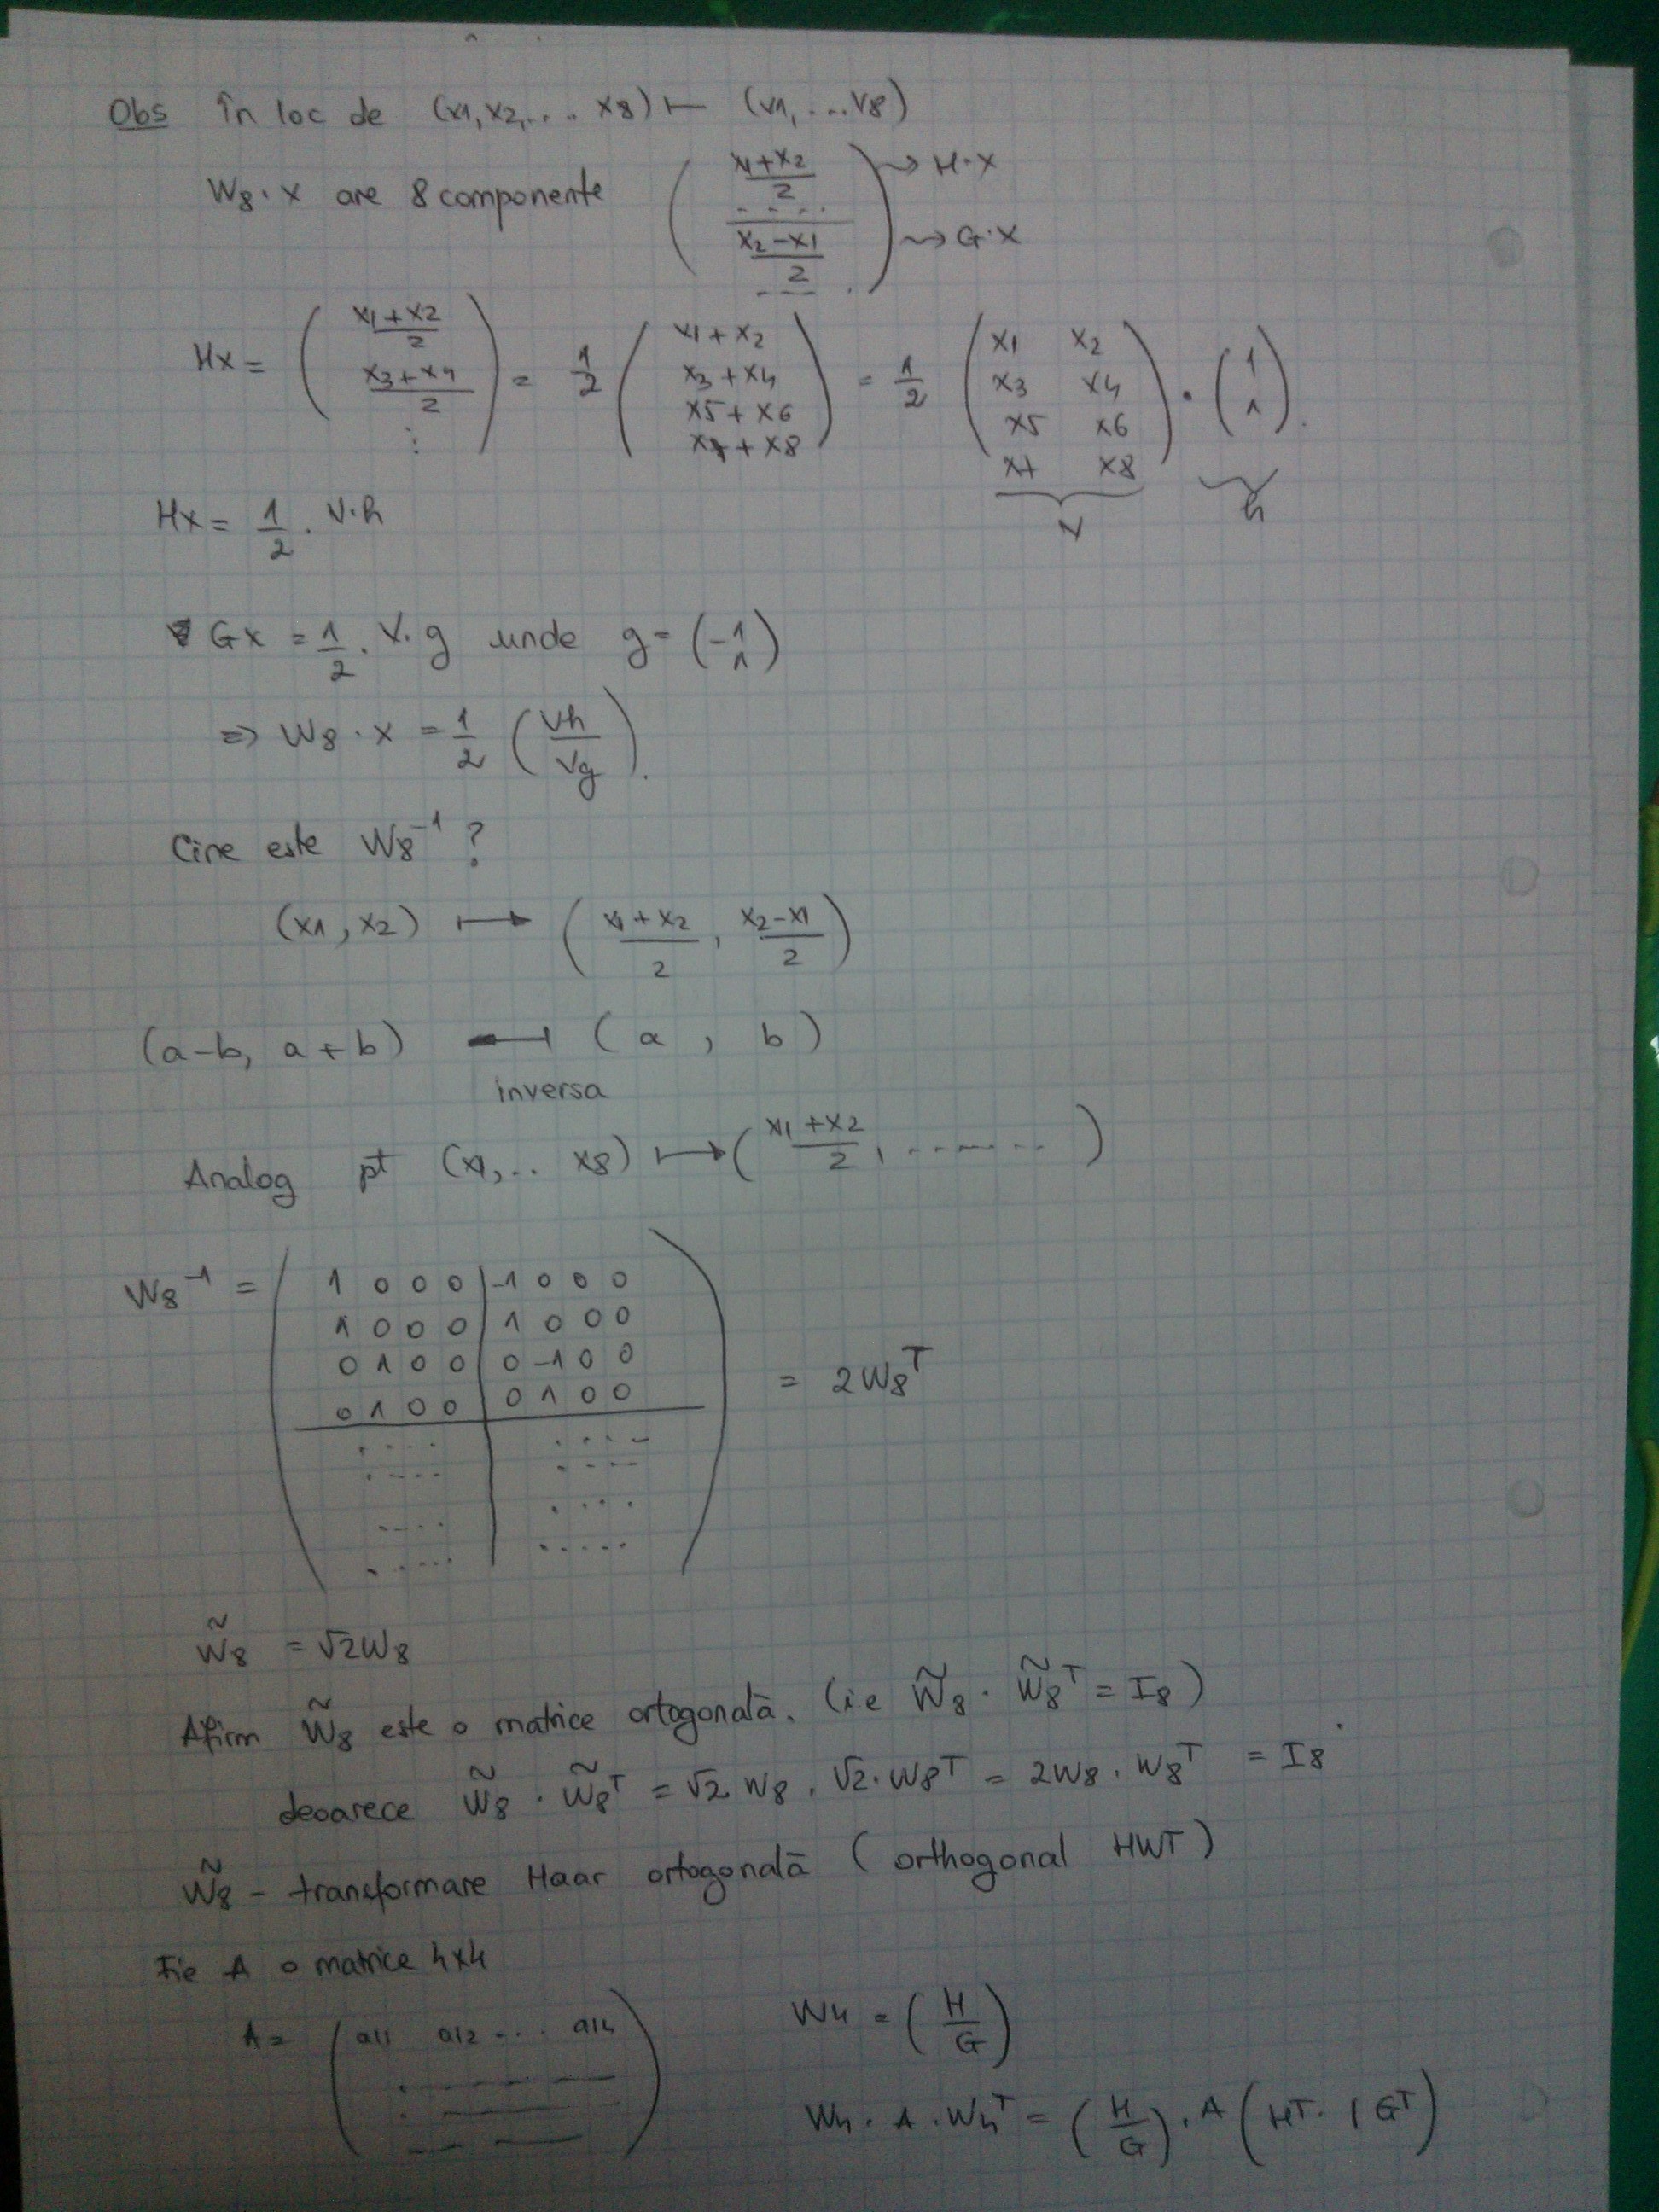 Obs În loc de (x1, x2, .... x8) ⊢ (v1, ... v8)
W8 · x are 8 componente ( x1+x2 / 2 .... / x2-x1 / 2 --- . ) ⇝ H·x ⇝ G·x
Hx = ( x1+x2 / 2  x3+x4 / 2 ⋮ ) = 1/2 ( x1+x2  x3+x4  x5+x6  x7+x8 ) = 1/2 ( x1 x2  x3 x4  x5 x6  x7 x8 ) · ( 1 1 ).
V h
Hx = 1/2 · V·h
Gx = 1/2 · V·g unde g = ( -1 1 )
⇒ W8 · x = 1/2 ( Vh / Vg ).
Cine este W8⁻¹ ?
(x1, x2) ⟼ ( x1+x2 / 2 , x2-x1 / 2 )
(a-b, a+b) ⟻ ( a , b )
inversa
Analog pt (x1, .. x8) ⟼ ( x1+x2 / 2 , ........ )
1 0 0 0 | -1 0 0 0
W8⁻¹ =
1 0 0 0 | 1 0 0 0
0 1 0 0 | 0 -1 0 0
= 2W8ᵀ
0 1 0 0 | 0 1 0 0
W̃8 = √2W8
Afirm W̃8 este o matrice ortogonată. (i.e W̃8 · W̃8ᵀ = I8)
deoarece W̃8 · W̃8ᵀ = √2 W8 · √2 · W8ᵀ = 2W8 · W8ᵀ = I8
W̃8 - transformare Haar ortogonată (orthogonal HWT)
Fie A o matrice 4x4
A = ( a11 a12 ... a14 ) W4 = ( H / G )
W4 · A · W4ᵀ = ( H / G ) · A ( Hᵀ · | Gᵀ )